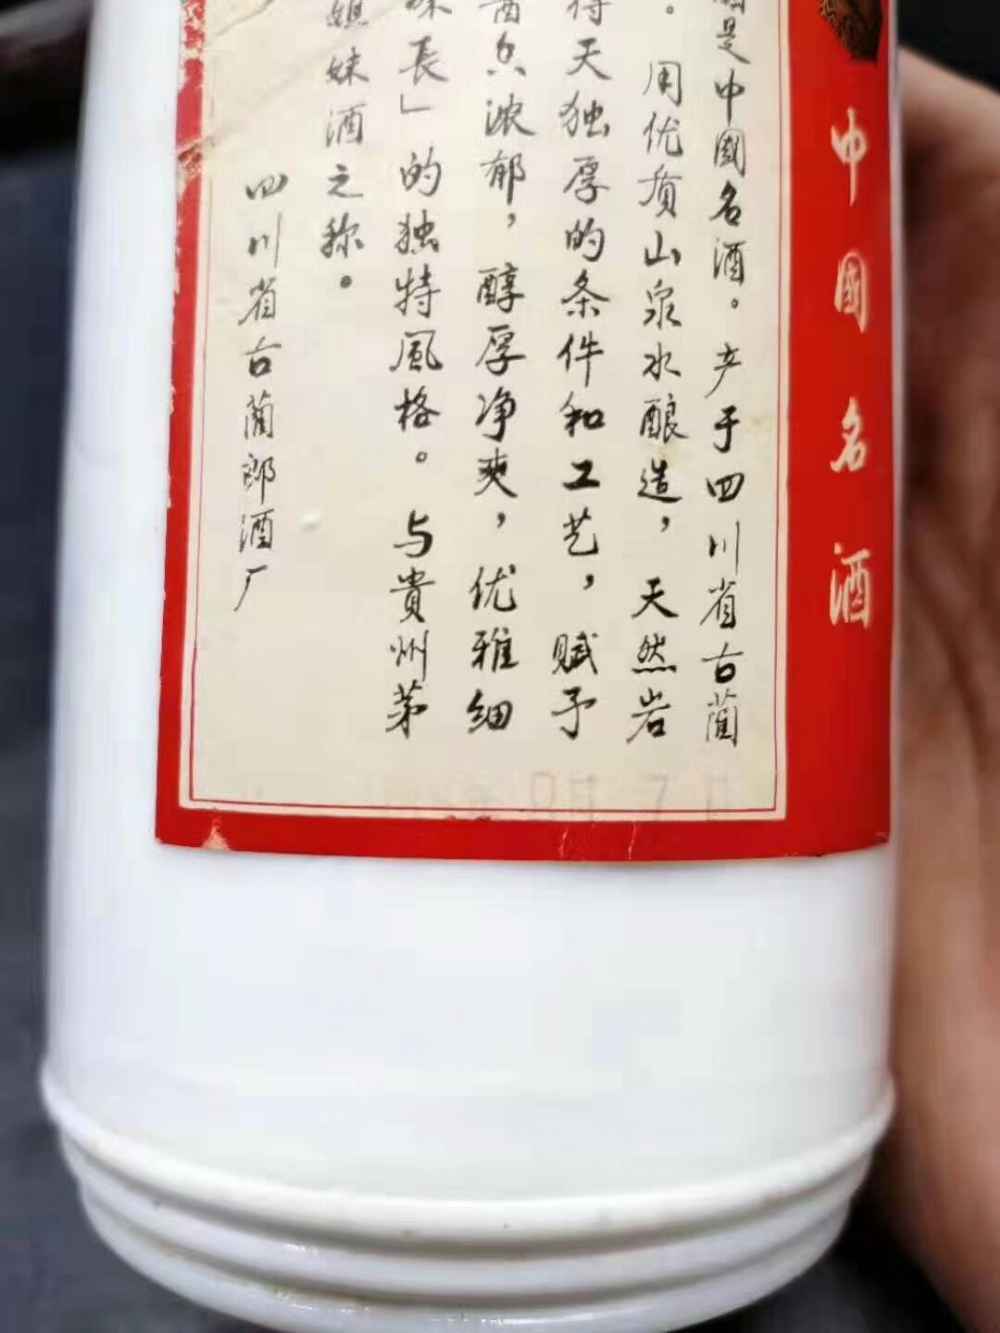 中國名酒
是中國名酒。产于四川省古蔺
。用优质山泉水酿造，天然岩
天独厚的条件和工艺，赋予
浓郁，醇厚净爽，优雅细
長」的独特風格。与貴州茅
姐妹酒之称。
四川省古蔺郎酒厂
9月 7日